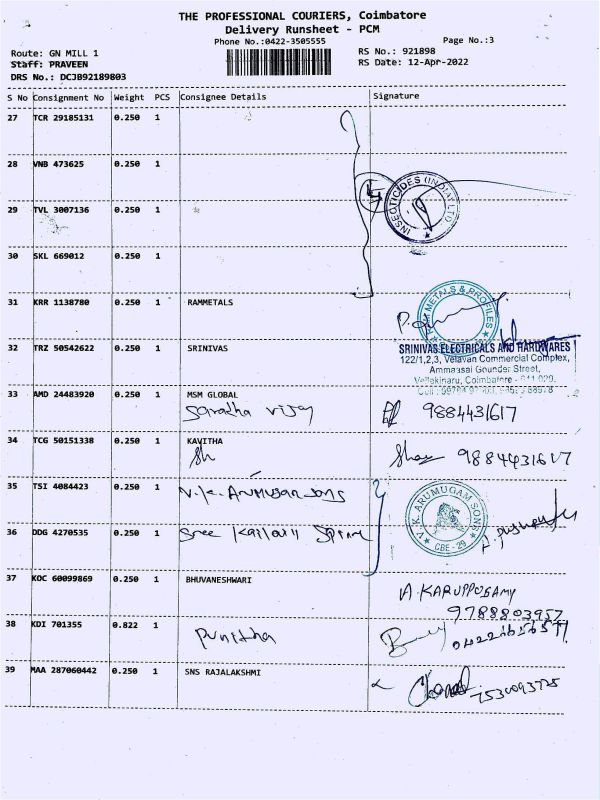 THE PROFESSIONAL COURIERS, Coimbatore
Delivery Runsheet - PCM
Phone No.:0422-3505555 Page No.:3
Route: GN MILL 1 RS No.: 921898
Staff: PRAVEEN RS Date: 12-Apr-2022
DRS No.: DCJB92189803
S No Consignment No Weight PCS Consignee Details Signature
27 TCR 29185131 0.250 1
28 VNB 473625 0.250 1
INSECTICIDES (INDIA) LTD
29 TVL 3007136 0.250 1
30 SKL 669012 0.250 1
31 KRR 1138780 0.250 1 RAMMETALS
RAM METALS & PROFILES
32 TRZ 50542622 0.250 1 SRINIVAS
SRINIVAS ELECTRICALS AND HARDWARES
122/1,2,3, Velavan Commercial Complex,
Ammaasai Gounder Street,
Vellakinaru, Coimbatore - 641 029.
33 AMD 24483920 0.250 1 MSM GLOBAL
Saradha vijay 9884431617
34 TCG 50151338 0.250 1 KAVITHA
Sh 9884431617
35 TSI 4084423 0.250 1 V.K. Arumugam Sons
V. K. ARUMUGAM SONS
CBE - 29
36 DDG 4270535 0.250 1 Sree
37 KOC 60099869 0.250 1 BHUVANESHWARI
A. KARUPPUSAMY
9788803957
38 KDI 701355 0.822 1 Punitha
39 MAA 287060442 0.250 1 SNS RAJALAKSHMI
7530093725